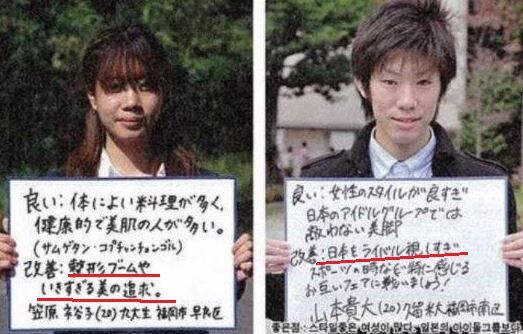 良い：体によい料理が多く、
健康的で美肌の人が多い。
(サムゲタン・コプチャンチョンゴル)
改善：整形ブームや
いきすぎる美の追求。
笠原 (20) 九大生 福岡市 早良区
良い：女性のスタイルが良すぎ
日本のアイドルグループでは
敵わない美脚
改善：日本をライバル視しすぎ
スポーツの時など特に感じる
お互いフェアに戦いましょう!
山本貴大(20)久留米大 福岡市南区
좋은점 : 스타일좋은 여성이 많다. 일본의 아이돌그룹보다